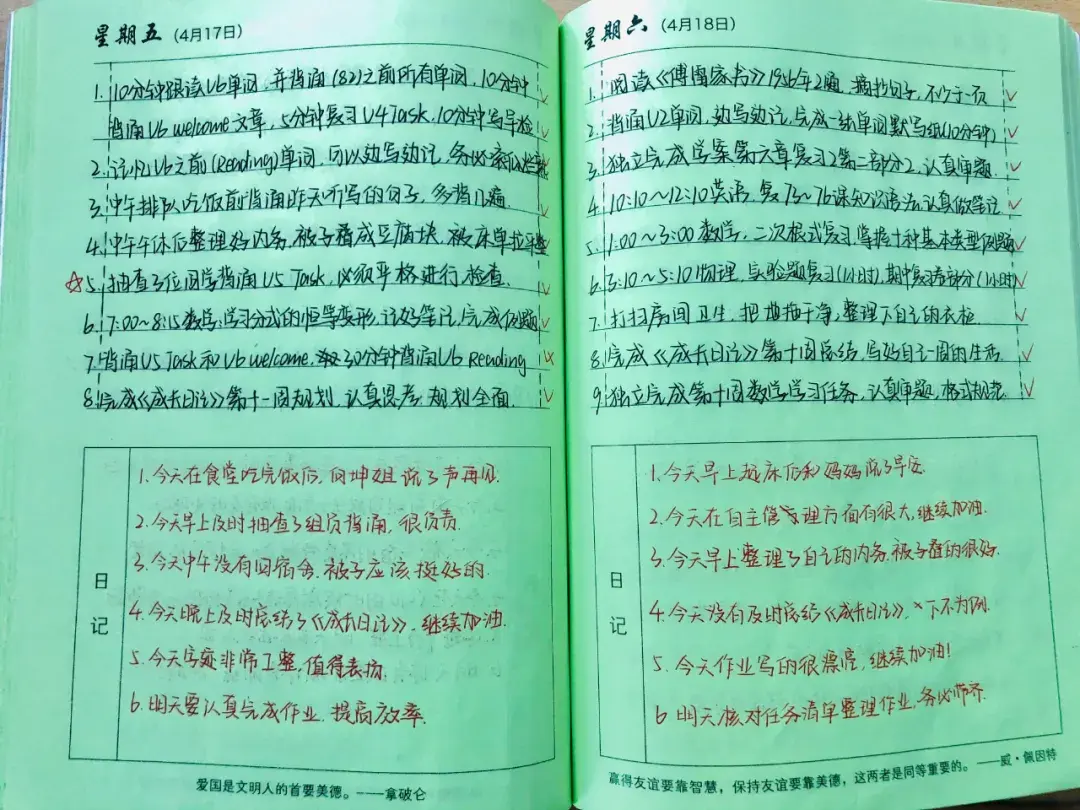 星期五（4月17日）
1. 10分钟跟读U6单词，并背诵(82)之前所有单词，10分钟
背诵U6 welcome文章，5分钟复习U4 Task，10分钟写早检
2. 记忆U6之前(Reading)单词，可以边写边记，务必
3. 中午排队吃饭前背诵昨天听写的句子，多背几遍
4. 中午午休后整理好内务，被子叠成豆腐块，被床单拉平整
☆5. 抽查3位同学背诵U5 Task，必须严格进行检查
6. 17:00~8:15数学：学习分式的恒等变形，记好笔记，完成例题
7. 背诵U5 Task和U6 welcome. 30分钟背诵U6 Reading
8. 完成《成长日记》第十一周规划，认真思考，规划全面
日记
1. 今天在食堂吃完饭后，向坤姐说了声再见.
2. 今天早上及时抽查了组员背诵，很负责.
3. 今天中午没有回宿舍，被子应该挺好的.
4. 今天晚上及时总结了《成长日记》，继续加油.
5. 今天字迹非常工整，值得表扬
6. 明天要认真完成作业，提高效率.
爱国是文明人的首要美德。——拿破仑
星期六（4月18日）
1. 阅读《傅雷家书》1956年2遍，摘抄句子，不少于一页
2. 背诵U2单词，边写边记，完成一张单词默写纸(10分钟)
3. 独立完成学案第六章复习2第二部分2，认真审题.
4. 10:10~12:10英语，复73~76课知识语法，认真做笔记
5. 1:00~3:00数学，二次根式复习，掌握十种基本类型例题
6. 3:10~5:10物理，实验题复习(1小时)，期中复习卷部分(1小时)
7. 打扫房间卫生，把地拖干净，整理下自己的衣柜.
8. 完成《成长日记》第十周总结，写好自己一周的生活
9. 独立完成第十周数学学习任务，认真审题，格式规范.
日记
1. 今天早上起床后和妈妈说了早安.
2. 今天在自主管理方面有很大，继续加油.
3. 今天早上整理了自己的内务，被子叠的很好.
4. 今天没有及时总结《成长日记》，下不为例.
5. 今天作业写的很漂亮，继续加油！
6 明天核对任务清单整理作业，务必带齐.
赢得友谊要靠智慧，保持友谊要靠美德，这两者是同等重要的。——威·佩因特